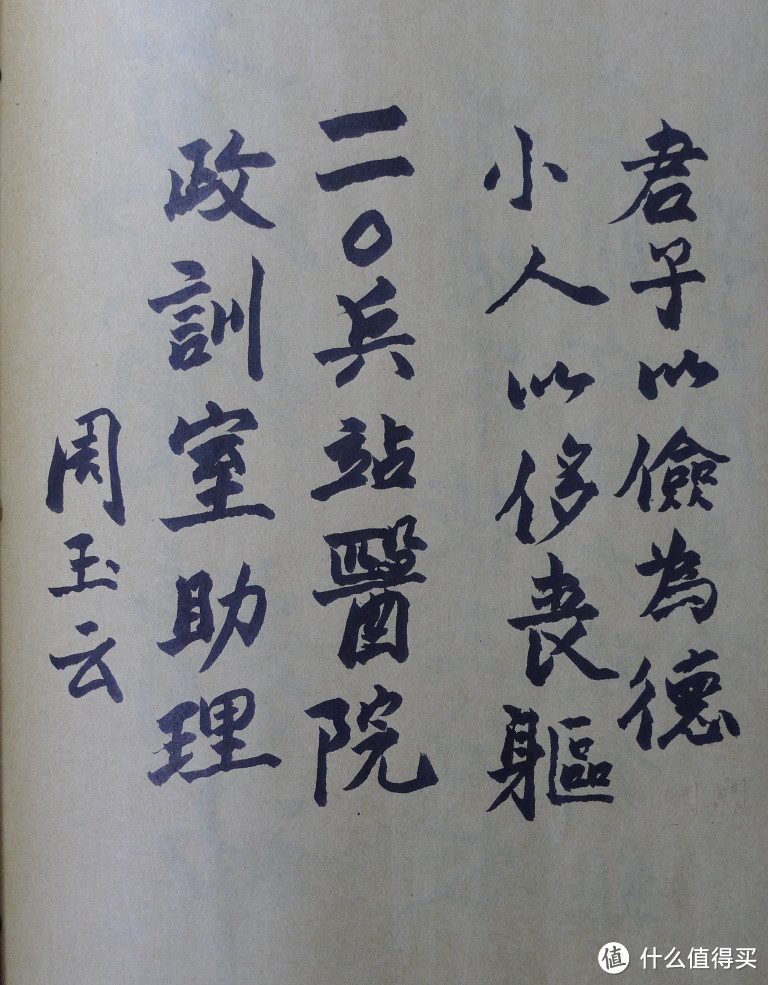 君子以儉為德
小人以侈喪軀
二〇兵站醫院
政訓室助理
周玉云
值 什么值得买